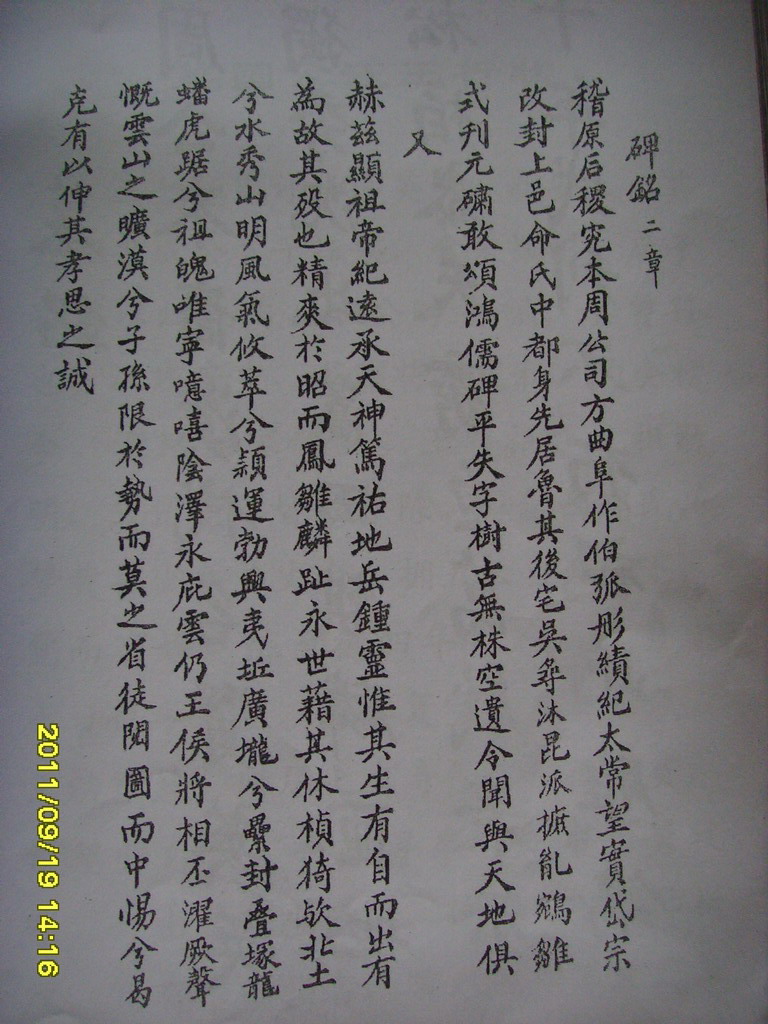 碑銘二章
稽原后稷究本周公司方曲阜作伯弧彤績紀太常望實岱宗
改封上邑命氏中都身先居魯其後宅吳尋沐昆派摭能鵷雛
式刊元礀敢頌鴻儒碑平失字樹古無株空遺令聞與天地俱
又
赫茲顯祖帝紀遠承天神篤祐地岳鍾靈惟其生有自而出有
為故其歿也精爽於昭而鳳雛麟趾永世藉其休楨猗歟北土
兮水秀山明風氣攸萃兮穎運勃興夷坵廣壠兮纍封疊塚龍
蟠虎踞兮祖魄唯寧噫嘻陰澤永庇雲仍王侯將相丕濯厥聲
慨雲山之曠漠兮子孫限於勢而莫之省徒閱圖而中惕兮曷
克有以伸其孝思之誠
2011/09/19 14:16